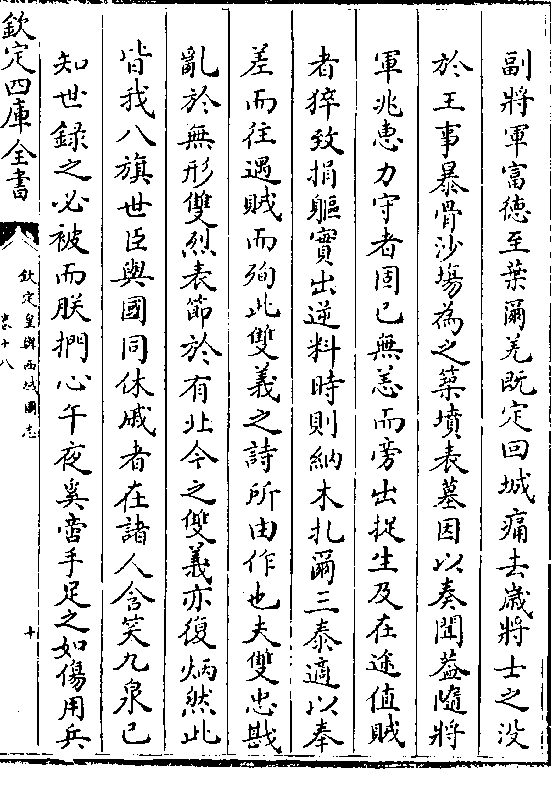 副將軍富德至葉爾羌既定回城痛去嵗將士之没
於王事暴骨沙塲為之築墳表墓因以奏聞葢隨將
軍兆惠力守者固已無恙而旁出捉生及在途值賊
者猝致捐軀實出逆料時則納木扎爾三泰適以奉
差而往遇賊而殉此雙義之詩所由作也夫雙忠戡
亂於無形雙烈表節於有北今之雙義亦復炳然此
皆我八旗世臣與國同休戚者在諸人含笑九泉已
知世録之必被而朕捫心午夜奚啻手足之如傷用兵
欽定四庫全書
欽定皇輿西域圖志
卷十八
十